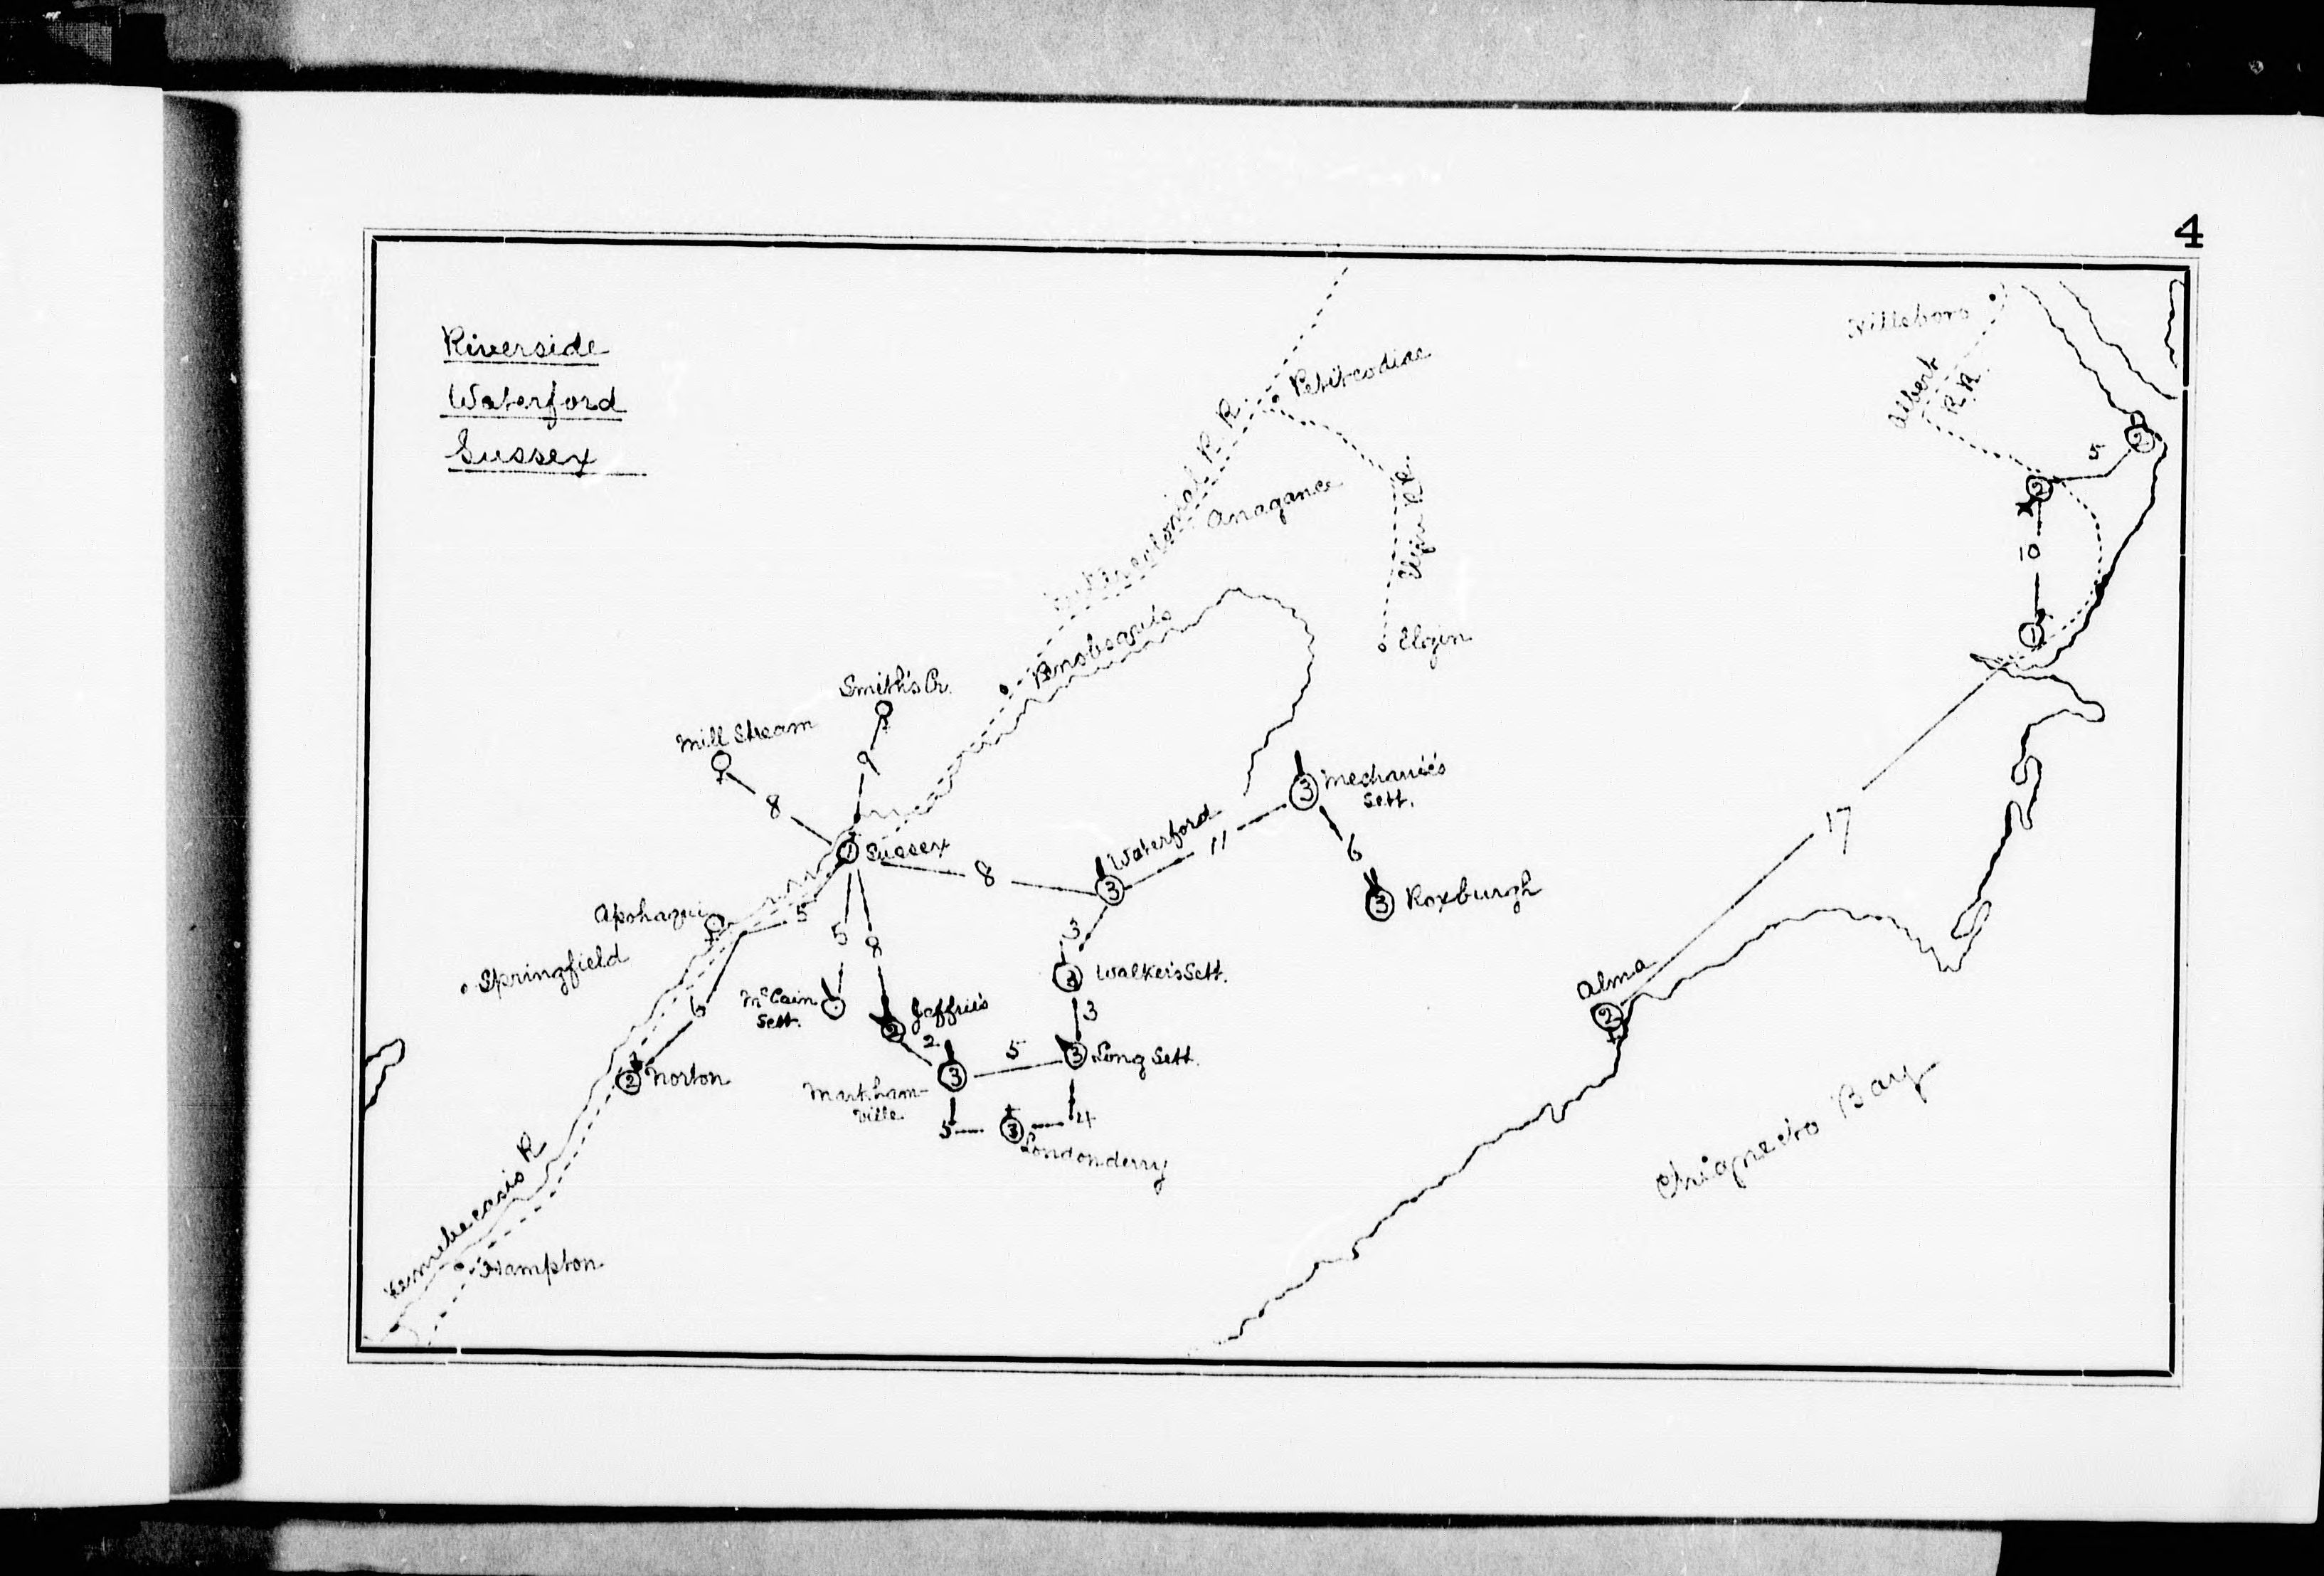 4
Riverside
Waterford
Sussex
Hillsboro
Albert
R.R.
Petitcodiac
Intercolonial R. R.
Anagance
Elgin R.R.
Elgin
Penobsquis
5
2
2
10
1
Smith's Cr.
Mill Stream
9
8
1 Sussex
8
Waterford
3
11
Mechanic's
Sett.
3
6
3 Roxburgh
17
Apohaqui
5
Springfield
6
5
8
3
McCain
Sett.
Jeffrie's
2
2
3 Walker's Sett.
3
5
3 Long Sett.
Alma
2
2 Norton
Markham-
ville
3
5
3
4
Londonderry
Kennebecasis R
Hampton
Chignecto Bay